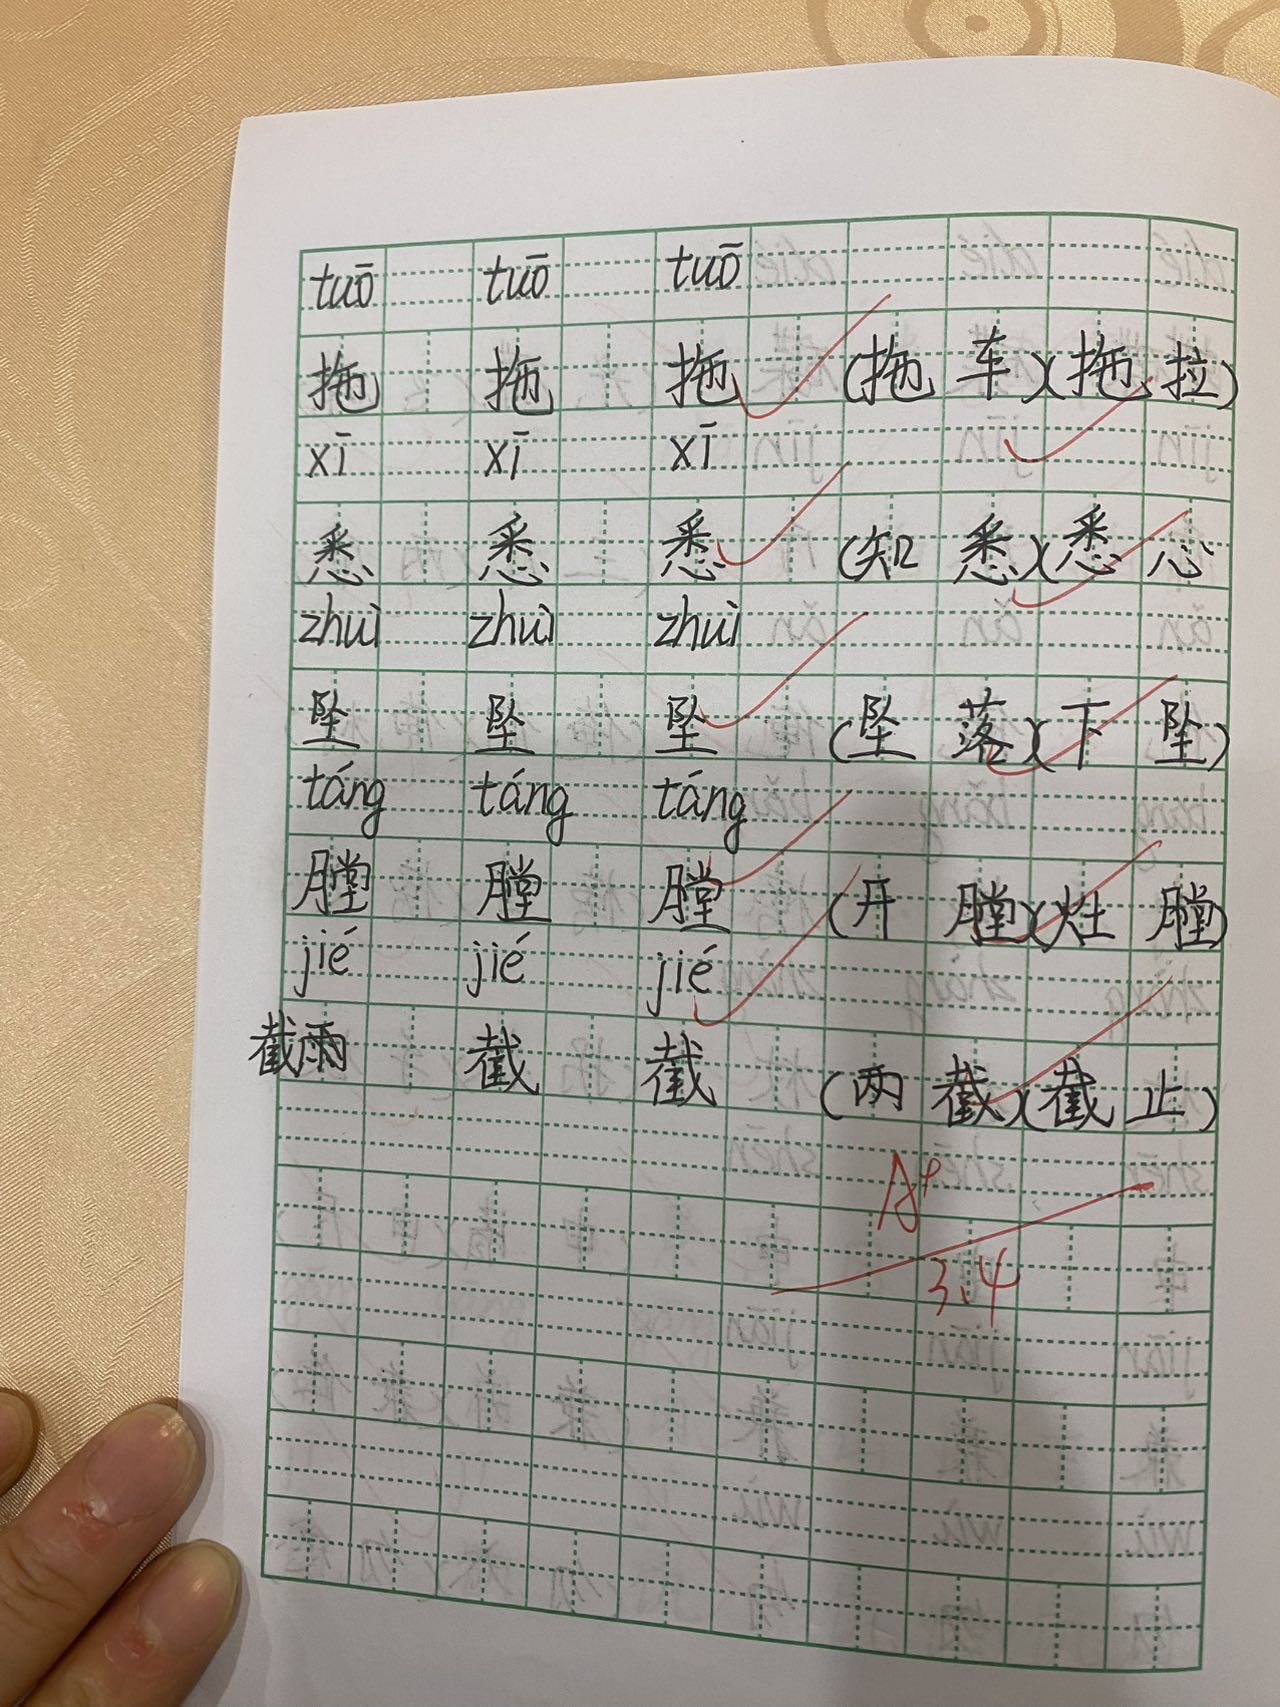 tuō tuō tuō
拖 拖 拖 (拖车)(拖拉)
xī xī xī
悉 悉 悉 (知悉)(悉心)
zhuì zhuì zhuì
坠 坠 坠 (坠落)(下坠)
táng táng táng
膛 膛 膛 (开膛)(灶膛)
jié jié jié
截雨 截 截 (两截)(截止)
A+
3.4